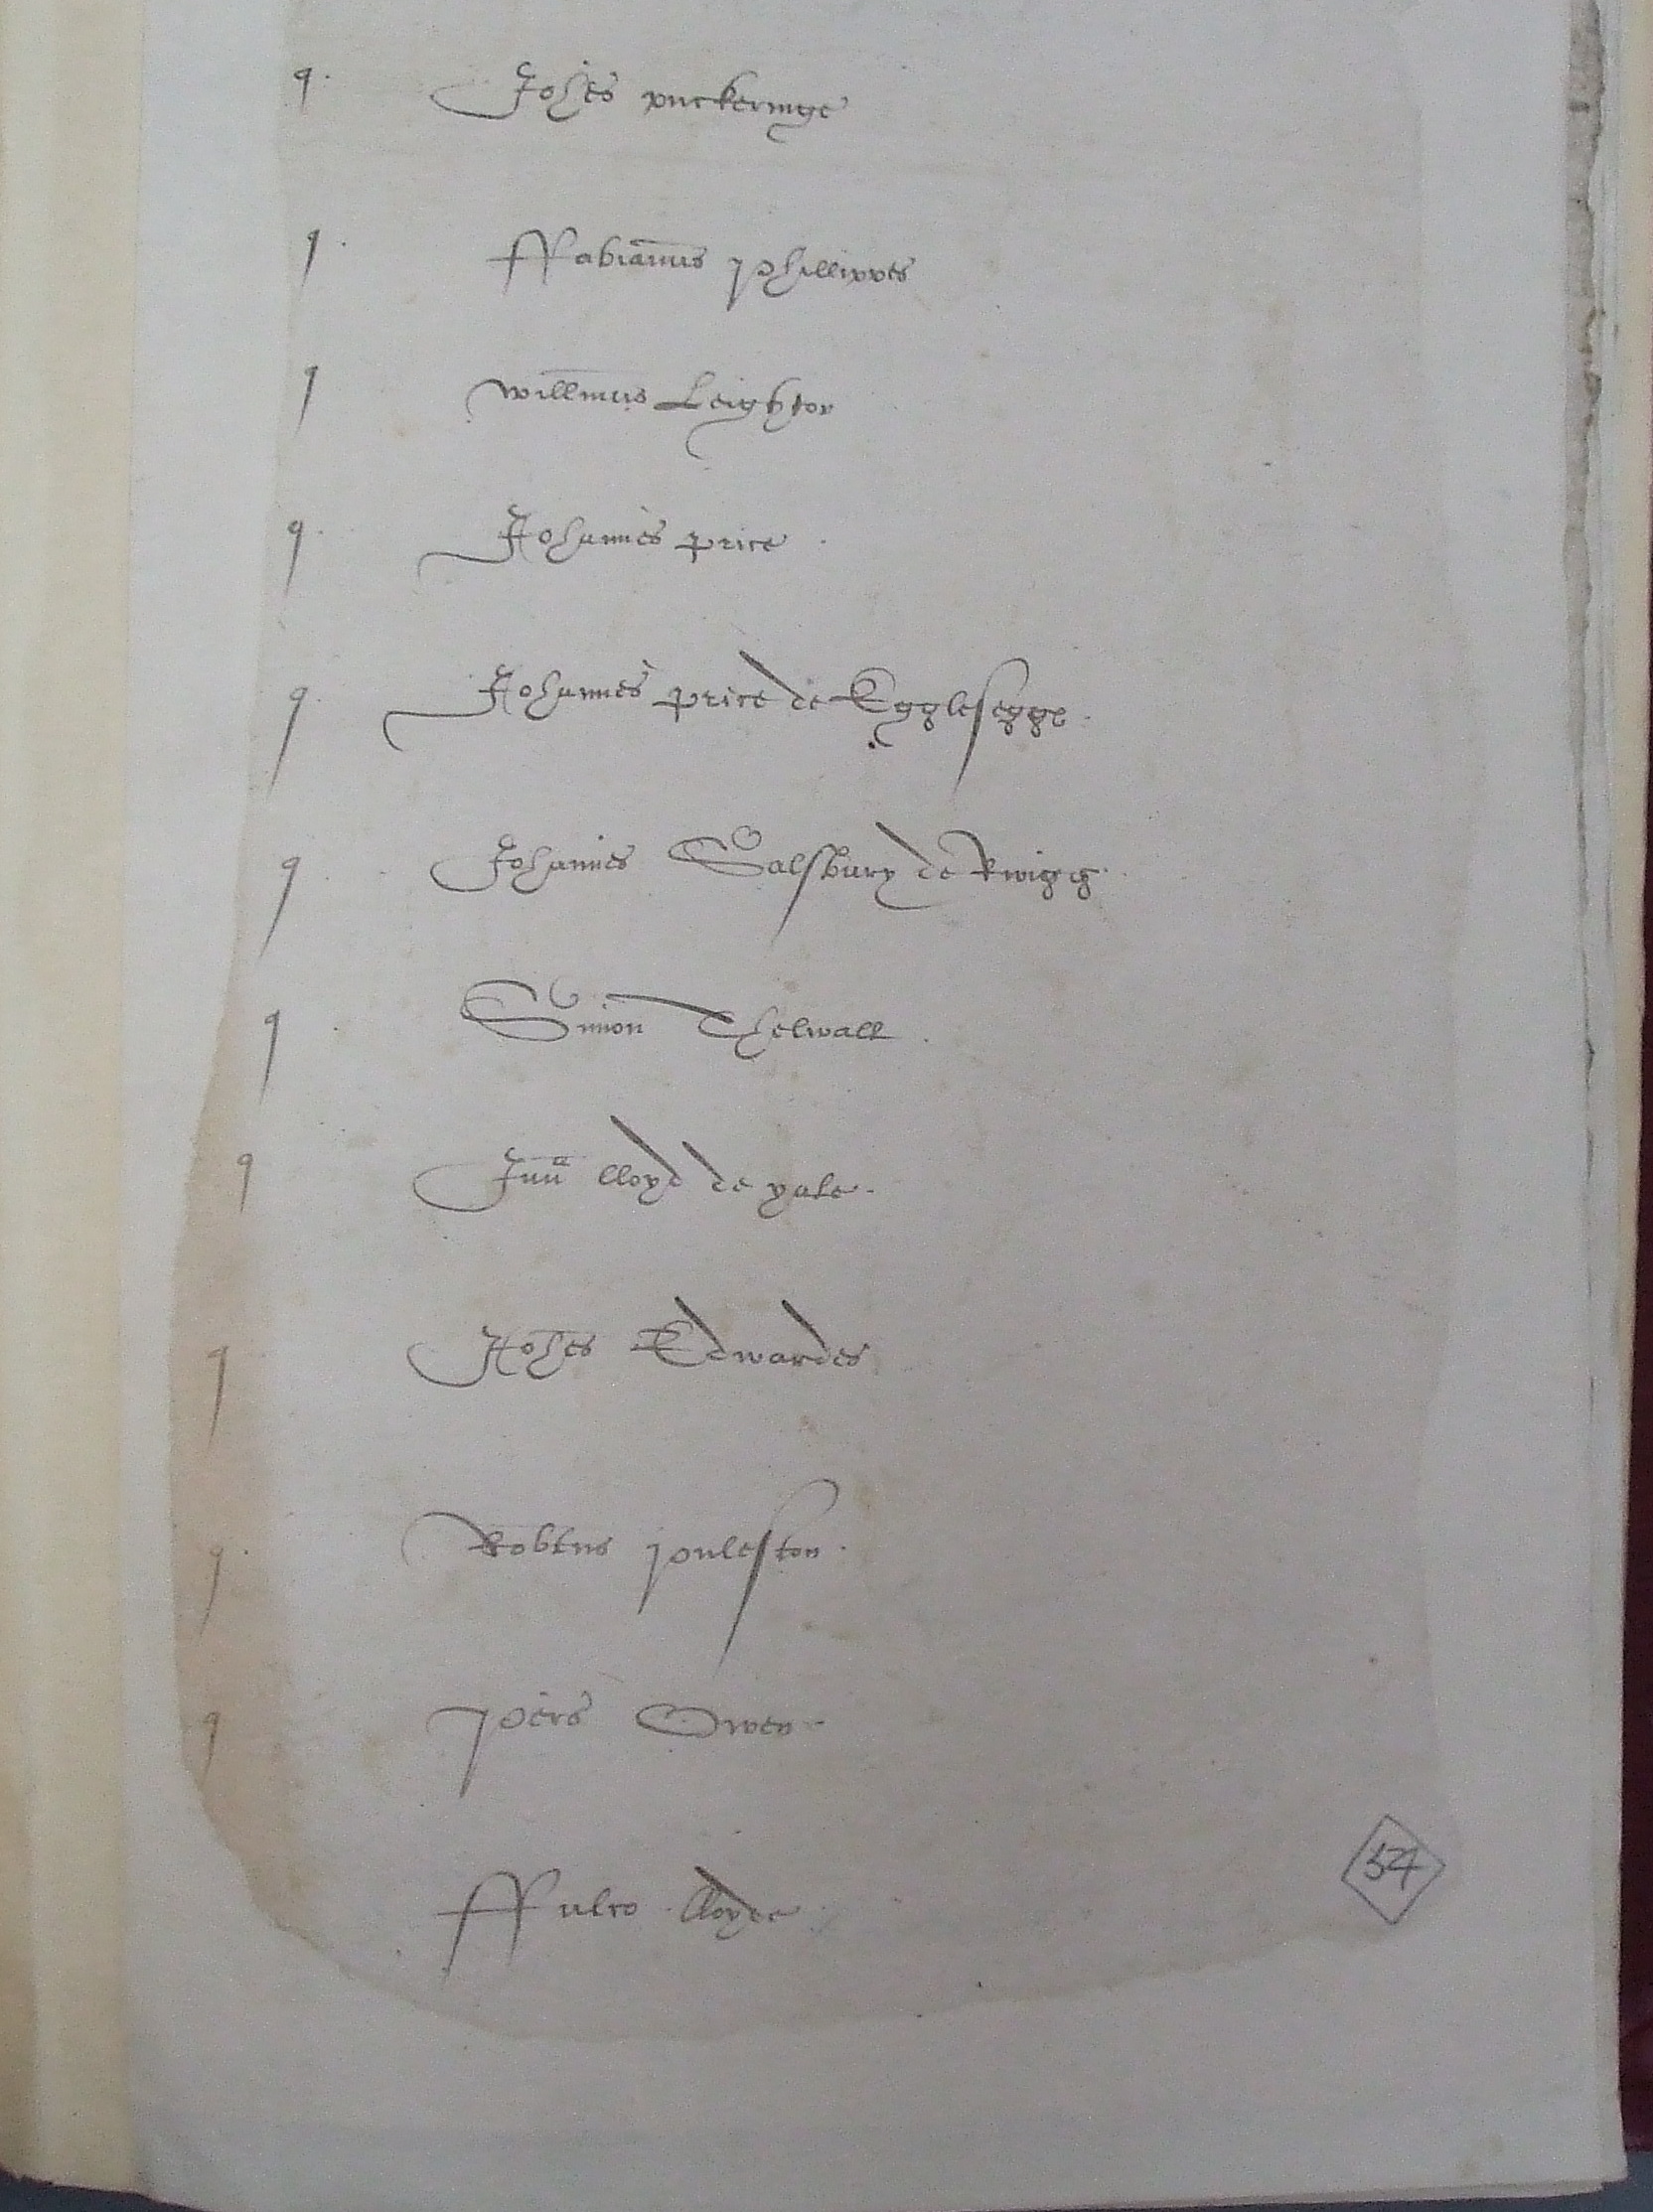 q. Johes puckeringe
q. ffabianus Phillippes
q willmus Leighton
q. Johannes price
q. Johannes price de Egglesegge
q. Johannes Salsbury de Rwgg
q Simon Thelwall
q Jeuan lloyd de yale
q Johes Edwardes
q. Robtus Puleston
q Peirs Owen
ffulco lloyde
54